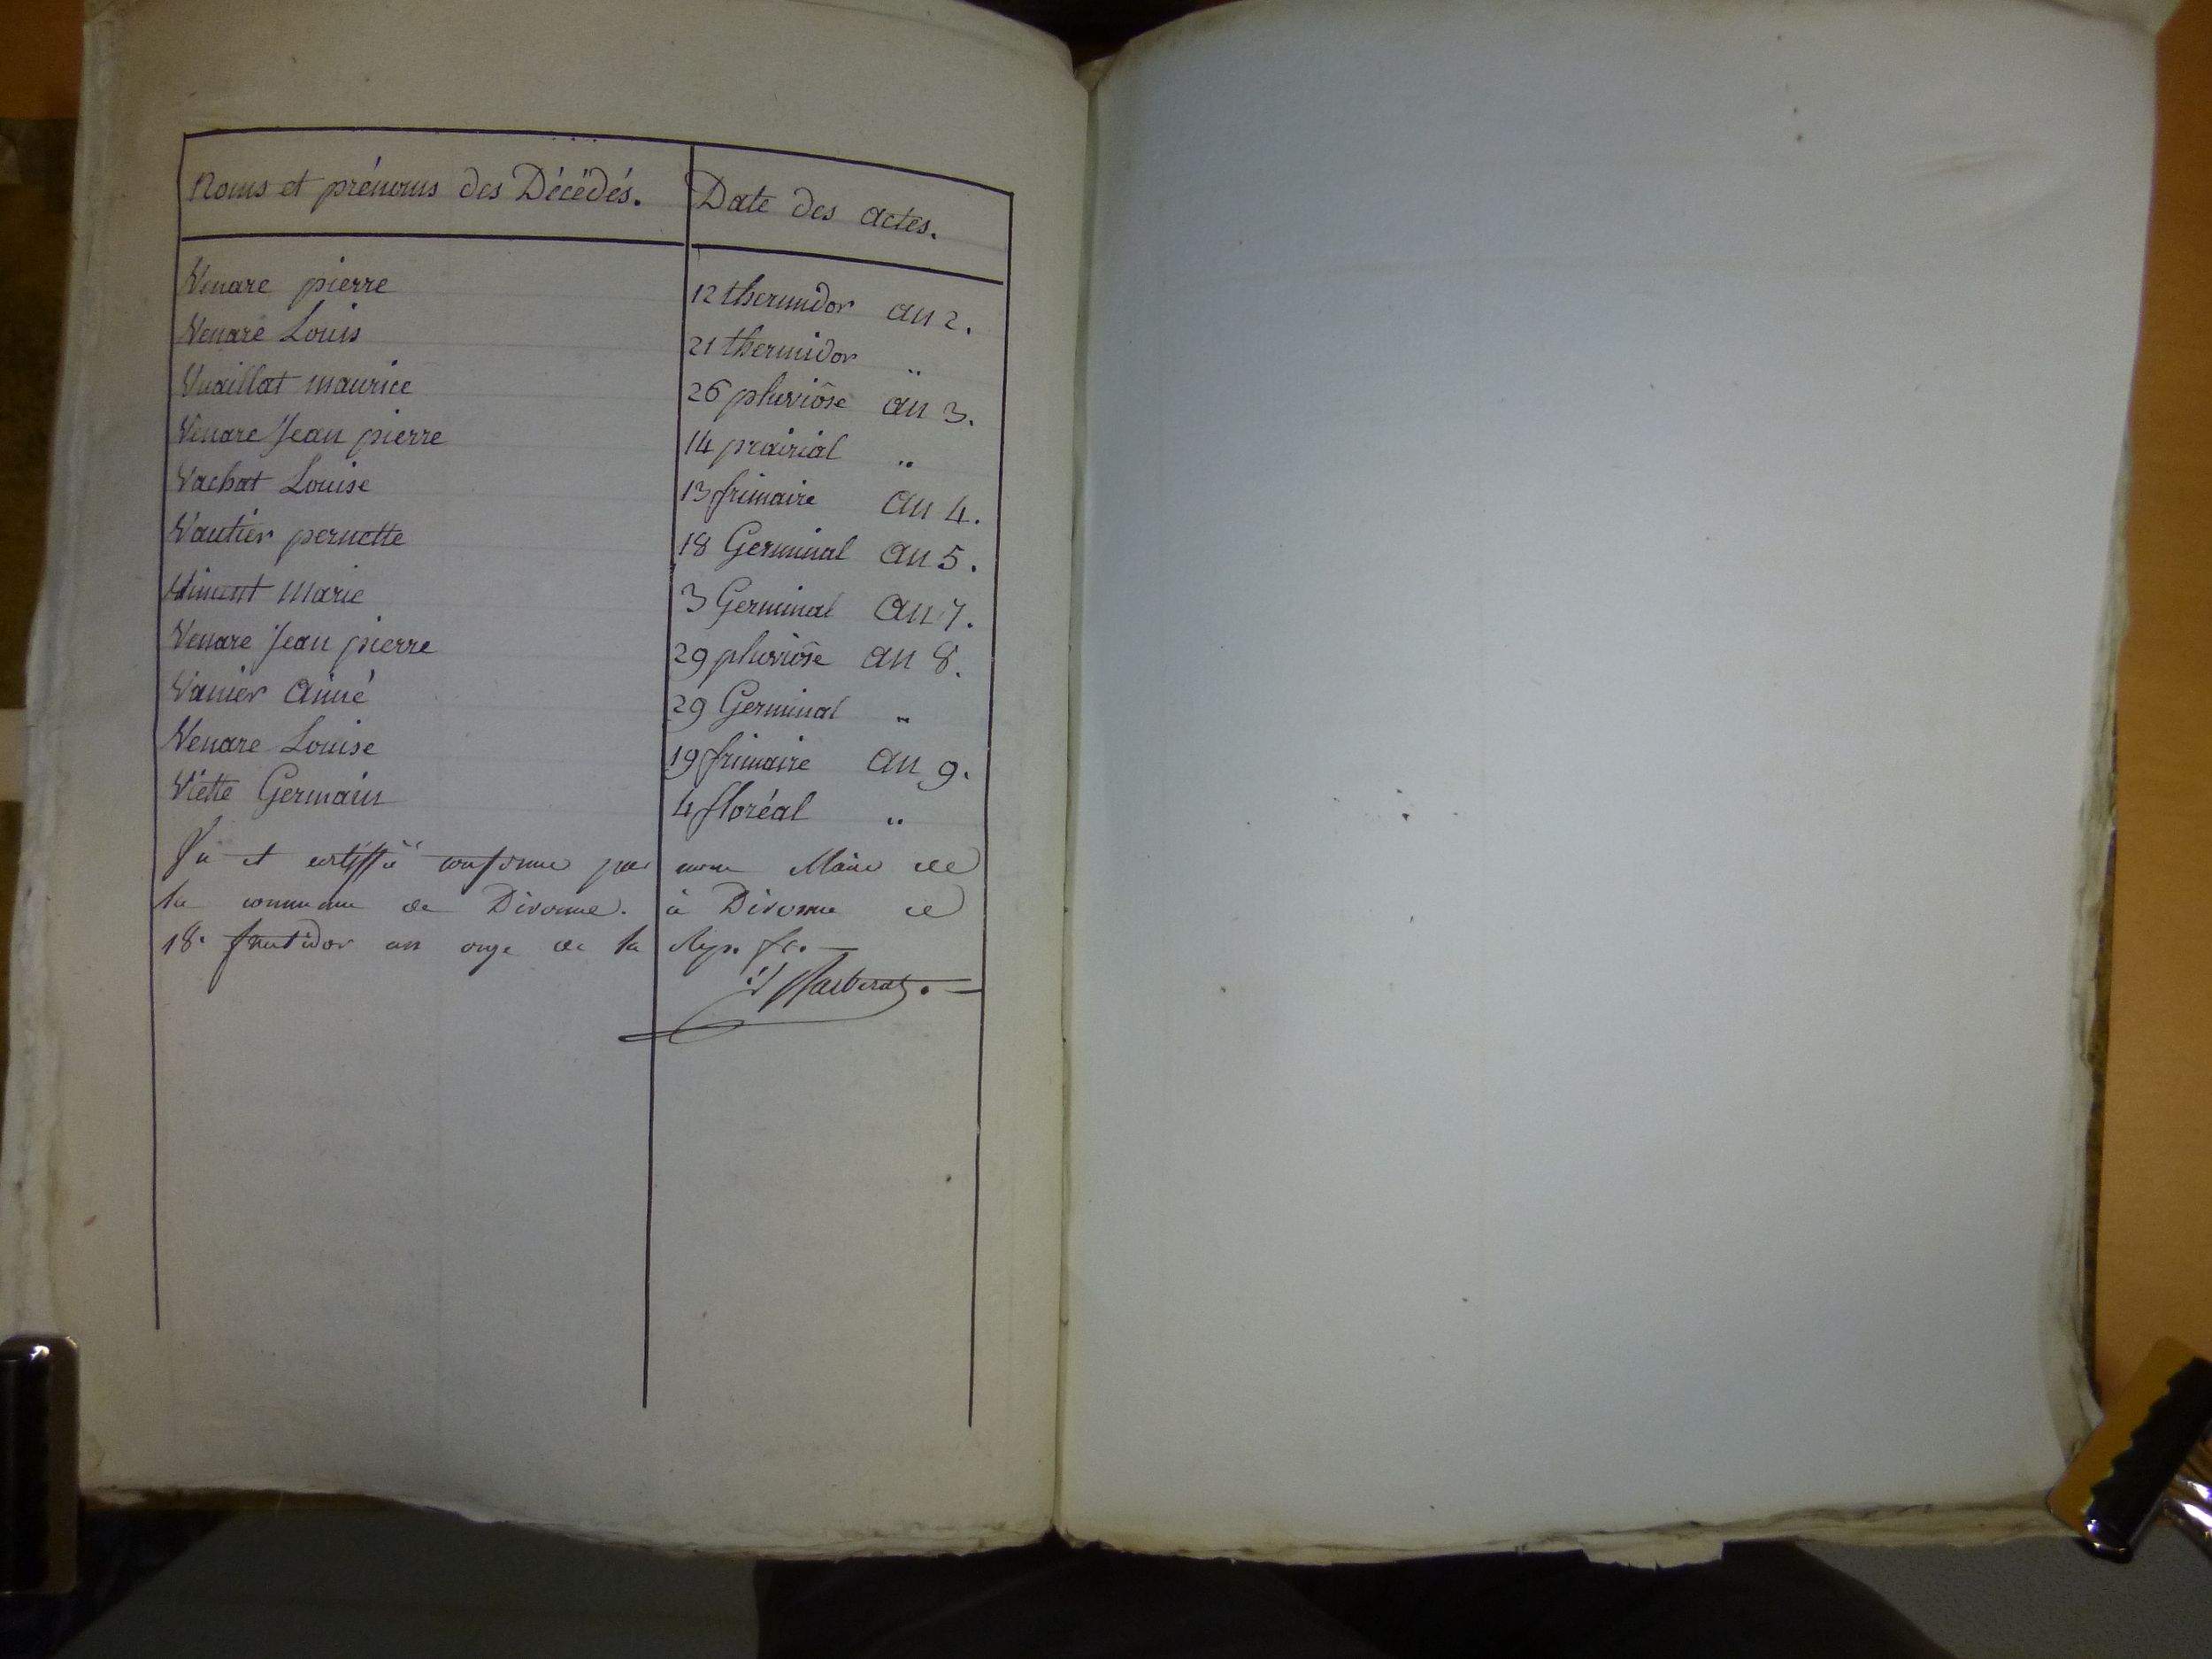 Noms et prénoms des Décédés. Date des actes.
Venare pierre 12 thermidor an 2.
Venare Louis 21 thermidor "
Vuaillat maurice 26 pluviôse an 3.
Venare Jean pierre 14 prairial "
Vachat Louise 13 frimaire an 4.
Vautier pernette 18 Germinal an 5.
Marie 3 Germinal an 7.
Venare Jean pierre 29 pluviôse an 8.
Vanier aimé 29 Germinal "
Venare Louise 19 frimaire an 9.
Viette Germain 4 floréal "
Vu et certiffié conforme par nous Maire de
la commune de Divonne. à Divonne ce
18. fructidor an onze de la Rep. fr.